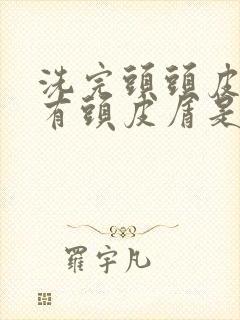 洗完頭頭皮
有頭皮盾是
羅宇凡